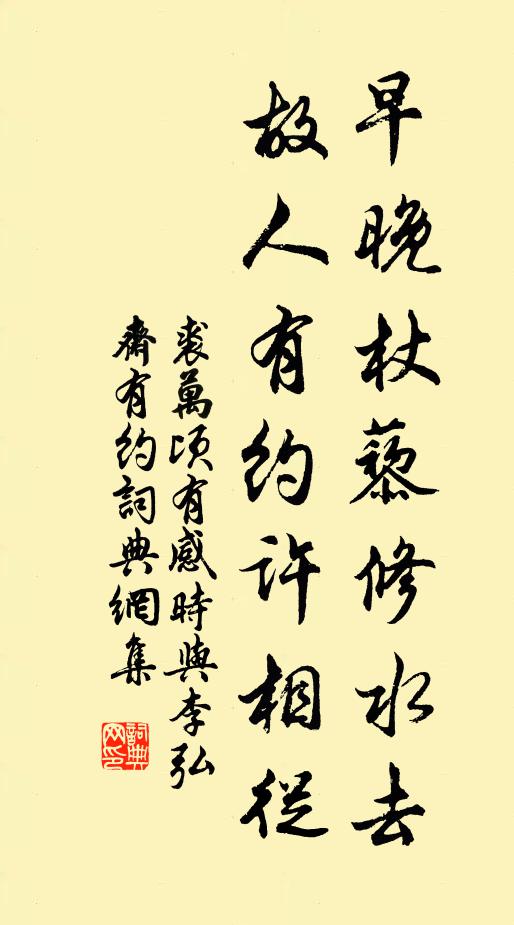 早晚杖藜修水去
故人有约许相從
裘萬頃有感時與李弘
齋有约詞典網集
詞典网印